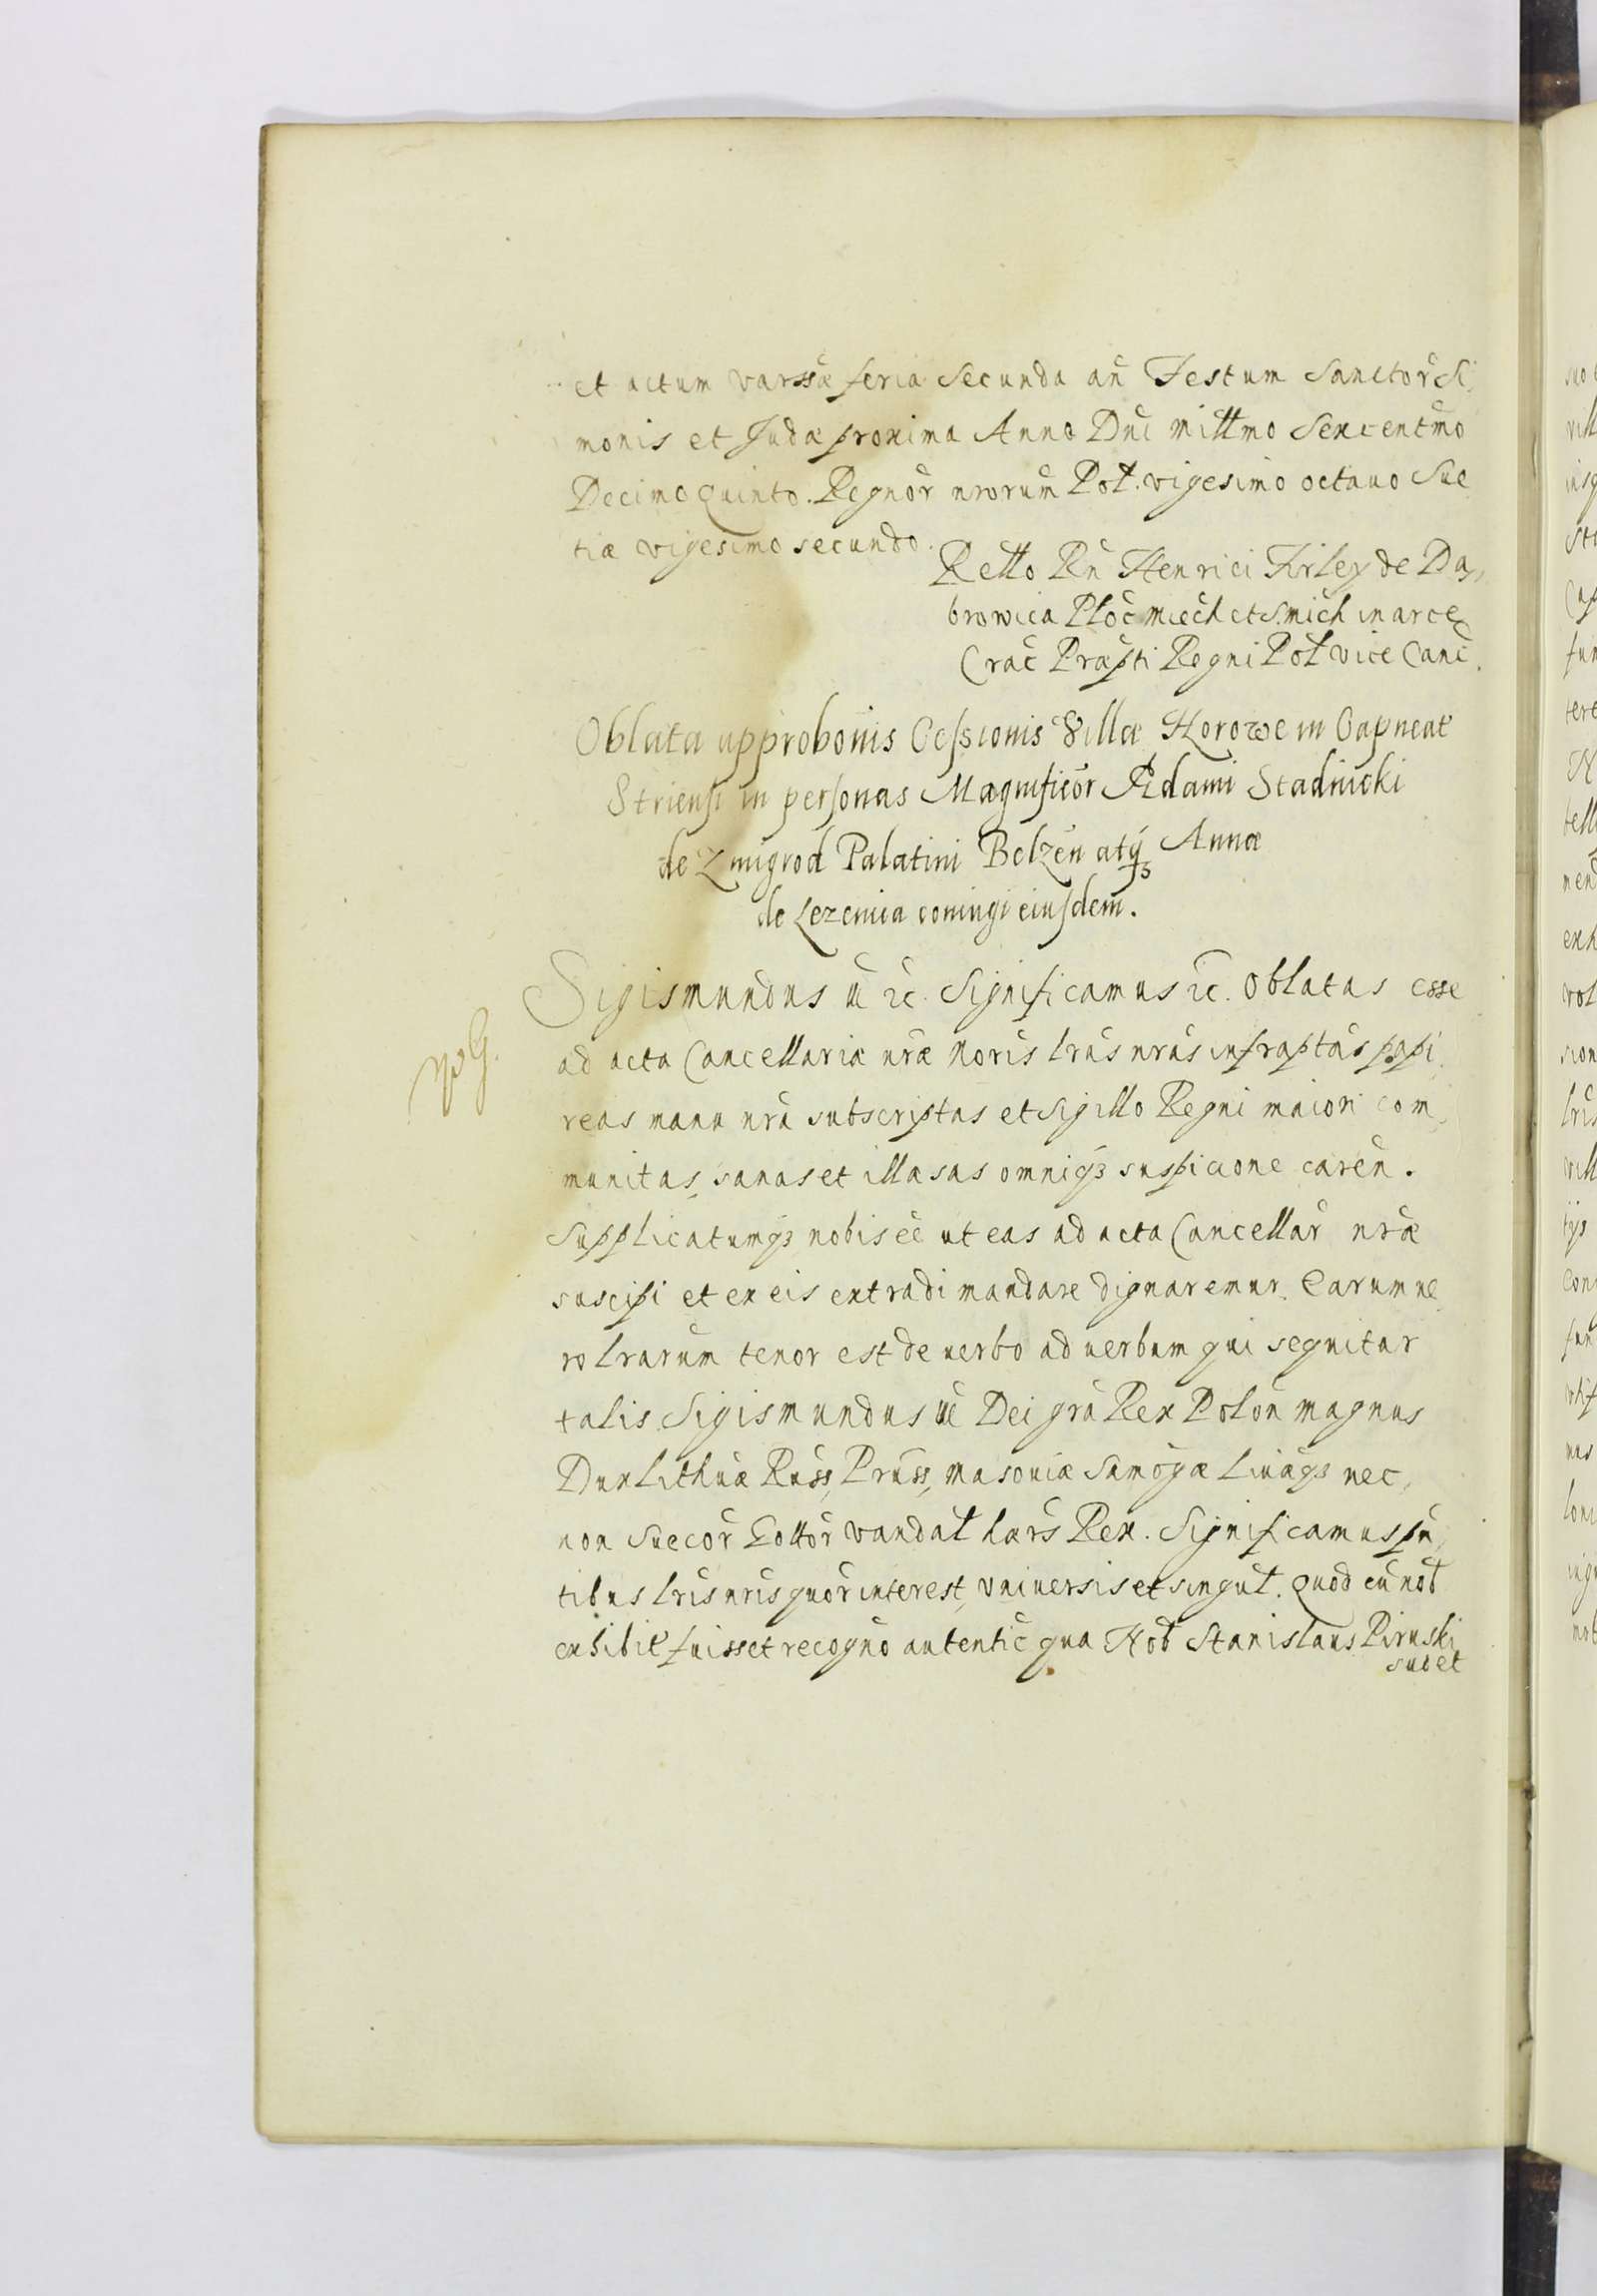 et actum varssæ feria Secunda añ Festum Sanctor̃ Si,
monis et Judæ proxima Anno Dñi Millmo Sexcentmo
Decimo quinto. Regnor̃ nrorum Pol. vigesimo octauo Sue
tiæ vigesimo secundo.
Retto Rñ Henrici Firley de Da,
browica Ploc̃ miec̃h et S. mich in arce
Crac̃ Præpti Regni Pol vice Canc̃.
Oblata approbonis Cessionis Villæ Horowe in Capneat
Striensi in personas Magnificor̃ Adami Stadnicki
de Zmigrod Palatini Belzen̄ atq3 Annæ
de Lezenica coniugi eiusdem.
Sigismundus iii ꝛc. Significamus ꝛc. Oblatas esse
ad acta Cancellariæ nræ Noris lras nras infraptas papi,
reas manu nra subscriptas et sigillo Regni maiori com,
munitas, sanas et illæsas omniq3 suspicione caren̄.
Supplicatumq3 nobis ee ut eas ad acta Cancellar̃ nræ
suscipi et ex eis extradi mandare dignaremur. Earum ue
ro lrarum tenor est de uerbo ad uerbum qui sequitur
talis Sigismundus iii Dei gra Rex Polon̄ magnus
Dux Lithuæ Russ, Pruss, masouiæ Samogæ Liuaq3 nec,
non Suecor̃ Gottor̃ Vandal hærs Rex. Significamus pn̄,
tibus lris nris quor̃ interest, vniuersis et singul. Quod cũ nob
exhibit fuisset recogno autentic̃ qua Nob Stanislaus Piruski
sub et